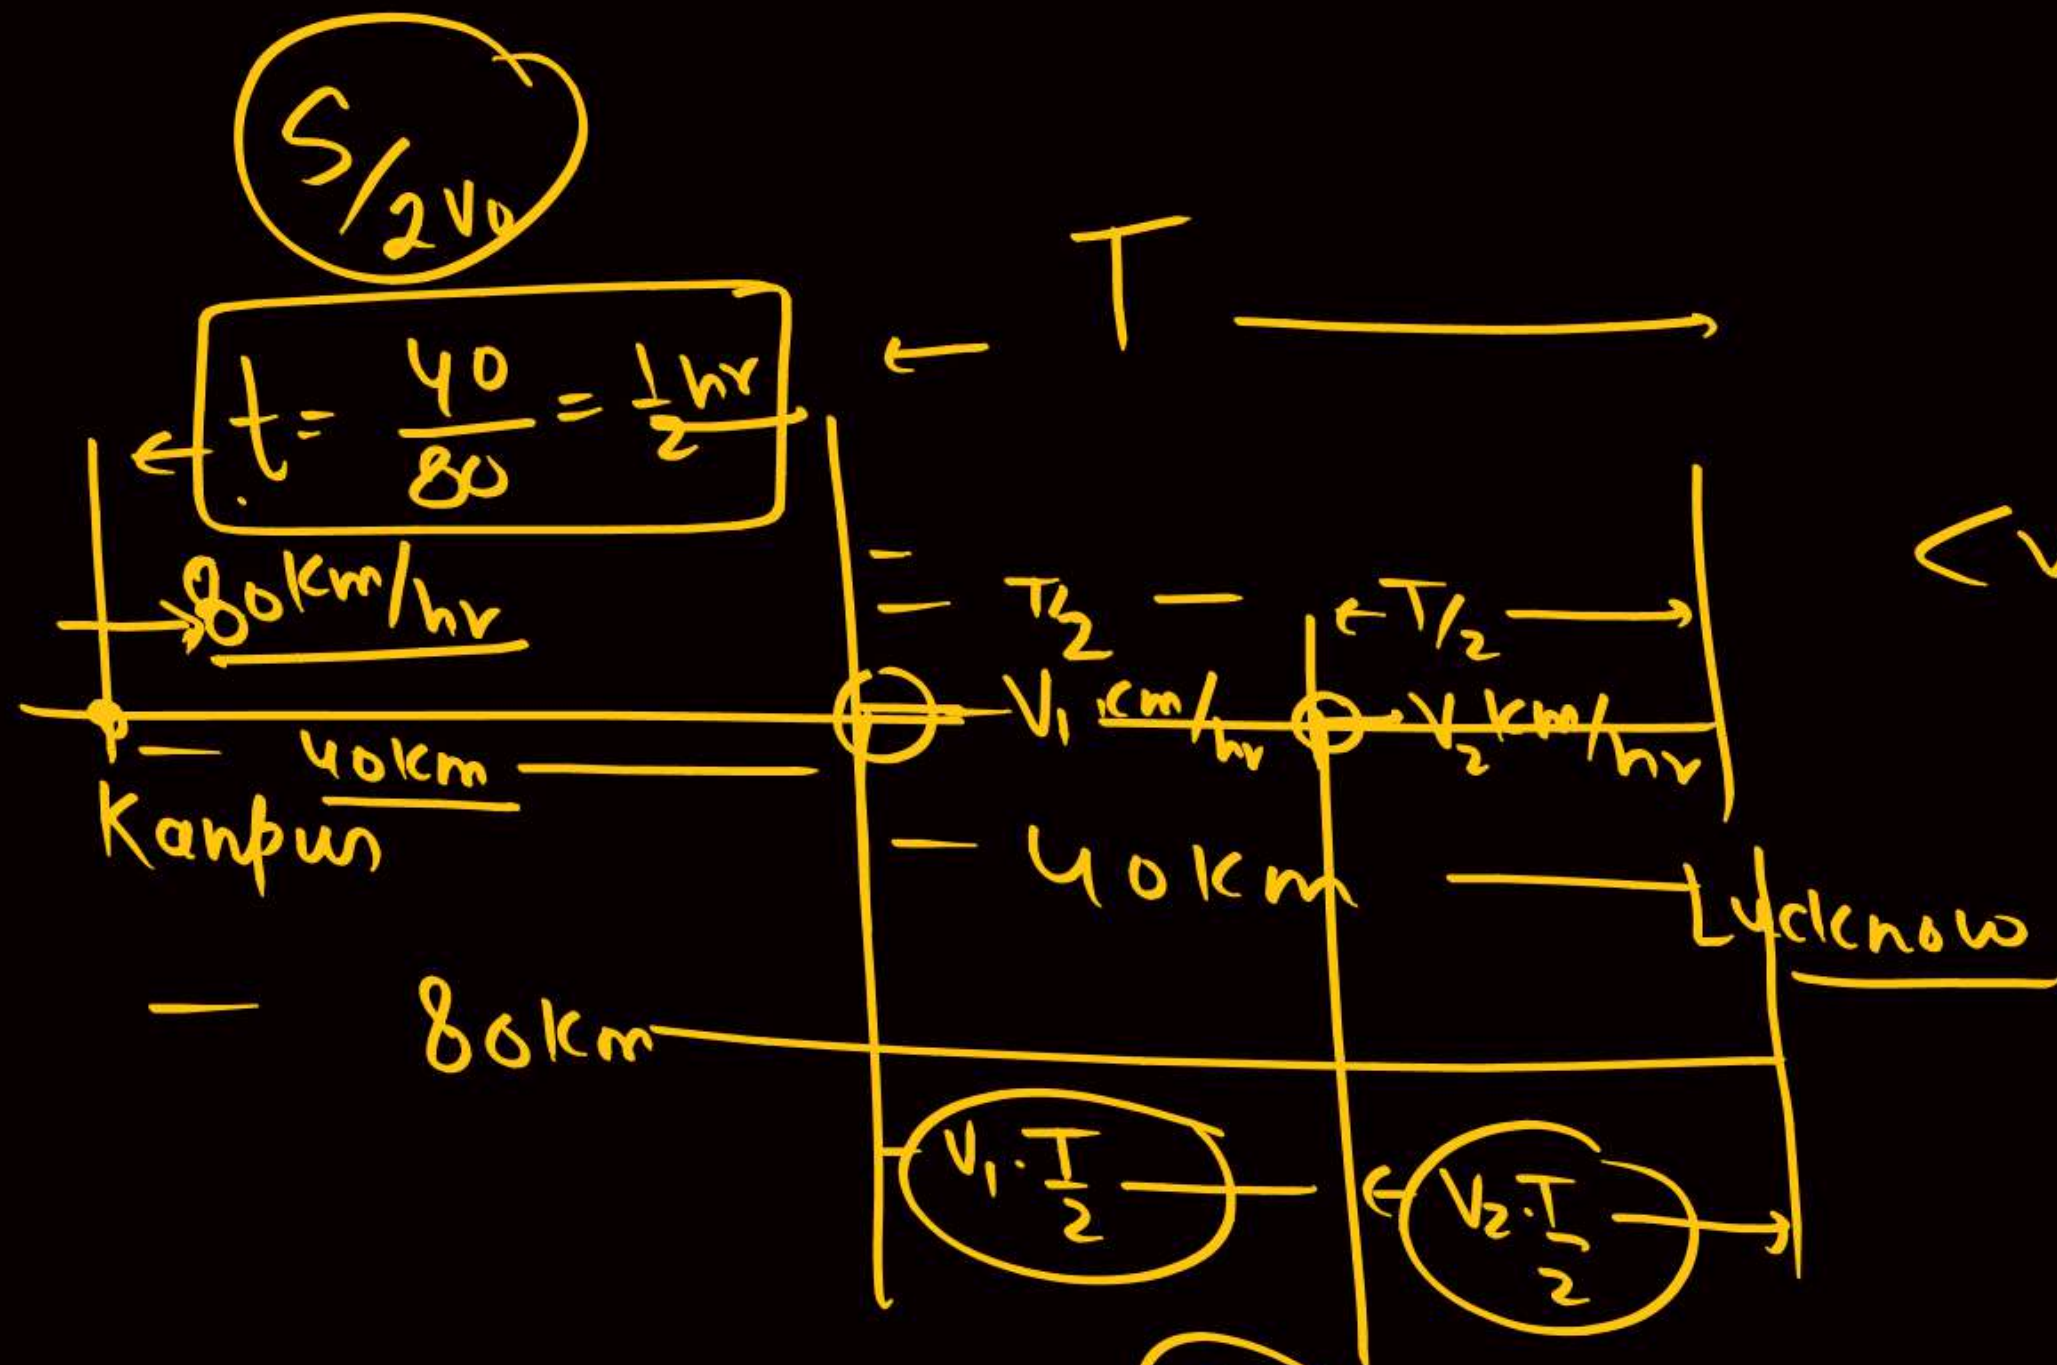 S/2V₀
T
t = 40/80 = 1/2 hr
80km/hr
T/2
T/2
<v
V₁ km/hr
V₂ km/hr
40km
Kanpur
40km
Lucknow
80km
V₁·T/2
V₂·T/2